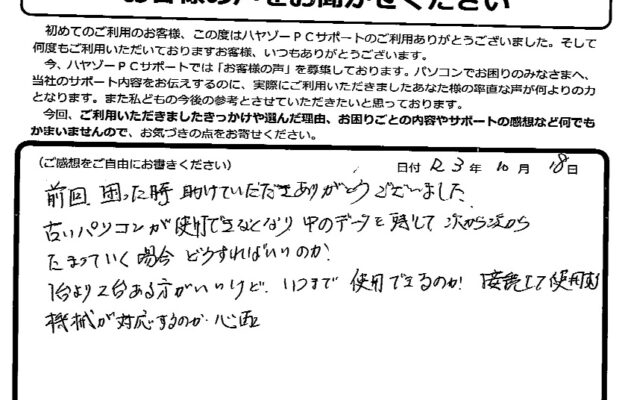 お客様の声をお聞かせください
初めてのご利用のお客様、この度はハヤゾーPCサポートのご利用ありがとうございました。そして
何度もご利用いただいておりますお客様、いつもありがとうございます。
今、ハヤゾーPCサポートでは「お客様の声」を募集しております。パソコンでお困りのみなさまへ、
当社のサポート内容をお伝えするのに、実際にご利用いただきましたあなた様の率直な声が何よりの力
となります。また私どもの今後の参考とさせていただきたいと思っております。
今回、ご利用いただきましたきっかけや選んだ理由、お困りごとの内容やサポートの感想など何でも
かまいませんので、お気づきの点をお寄せください。
(ご感想をご自由にお書きください) 日付 R3年10月18日
前回、困った時 助けていただきありがとうございました
古いパソコンが使用できなくなり 中のデータを残して 次から次から
たまっていく場合 どうすればいいのか?
1台より2台ある方がいいけど、いつまで 使用できるのか! 接続して使用する
機械が対応するのか 心配